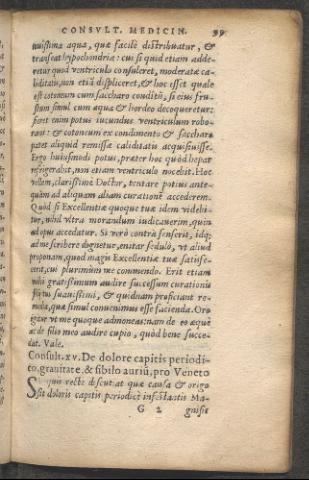 CONSVLT. MEDICIN. 99
nuissima aqua, quæ facilè distribuatur, &
transeat hypochondria: cui si quid etiam adde-
retur quod ventriculo consuleret, moderatæ ca-
liditatis, non etiã displiceret, & hoc esset quale
est cotoneum cum saccharo conditũ, si eius fru-
stum simul cum aqua & hordeo decoqueretur:
fieret enim potus iucundus ventriculum robo-
rans: & cotoneum ex condimento & saccharo
patet aliquid remissæ caliditatis acquisiuisse.
Ergo huiusmodi potus, præter hoc quòd hepar
refrigerabit, non etiam ventriculo nocebit. Hoc
vellem, clarissime Doctor, tentare potius ante-
quàm ad aliquam aliam curationẽ accederem.
Quòd si Excellentiæ quoque tuæ idem videbi-
tur, nihil vltra morandum iudicauerim, quin
ad opus accedatur. Si verò contrà senserit, idq;
ad me scribere dignetur, enitar sedulò, vt aliud
proponam, quod magis Excellentiæ tuæ satisfe-
cerit, cui plurimùm me commendo. Erit etiam
mihi gratissimum audire successum curationis
suauissimi, & quidnam proficiant re-
media, quæ simul conuenimus esse facienda. Oro
igitur vt me quoque admoneas: nam de eo æquè
ac de filio meo audire cupio, quòd bene succe-
dat. Vale.
Consult. xv. De dolore capitis periodi-
co, grauitate, & sibilo auriũ, pro Veneto
quis rectè discutiat quæ causa & origo
sit doloris capitis periodicè infestantis Ma-
G 2 gnificũ